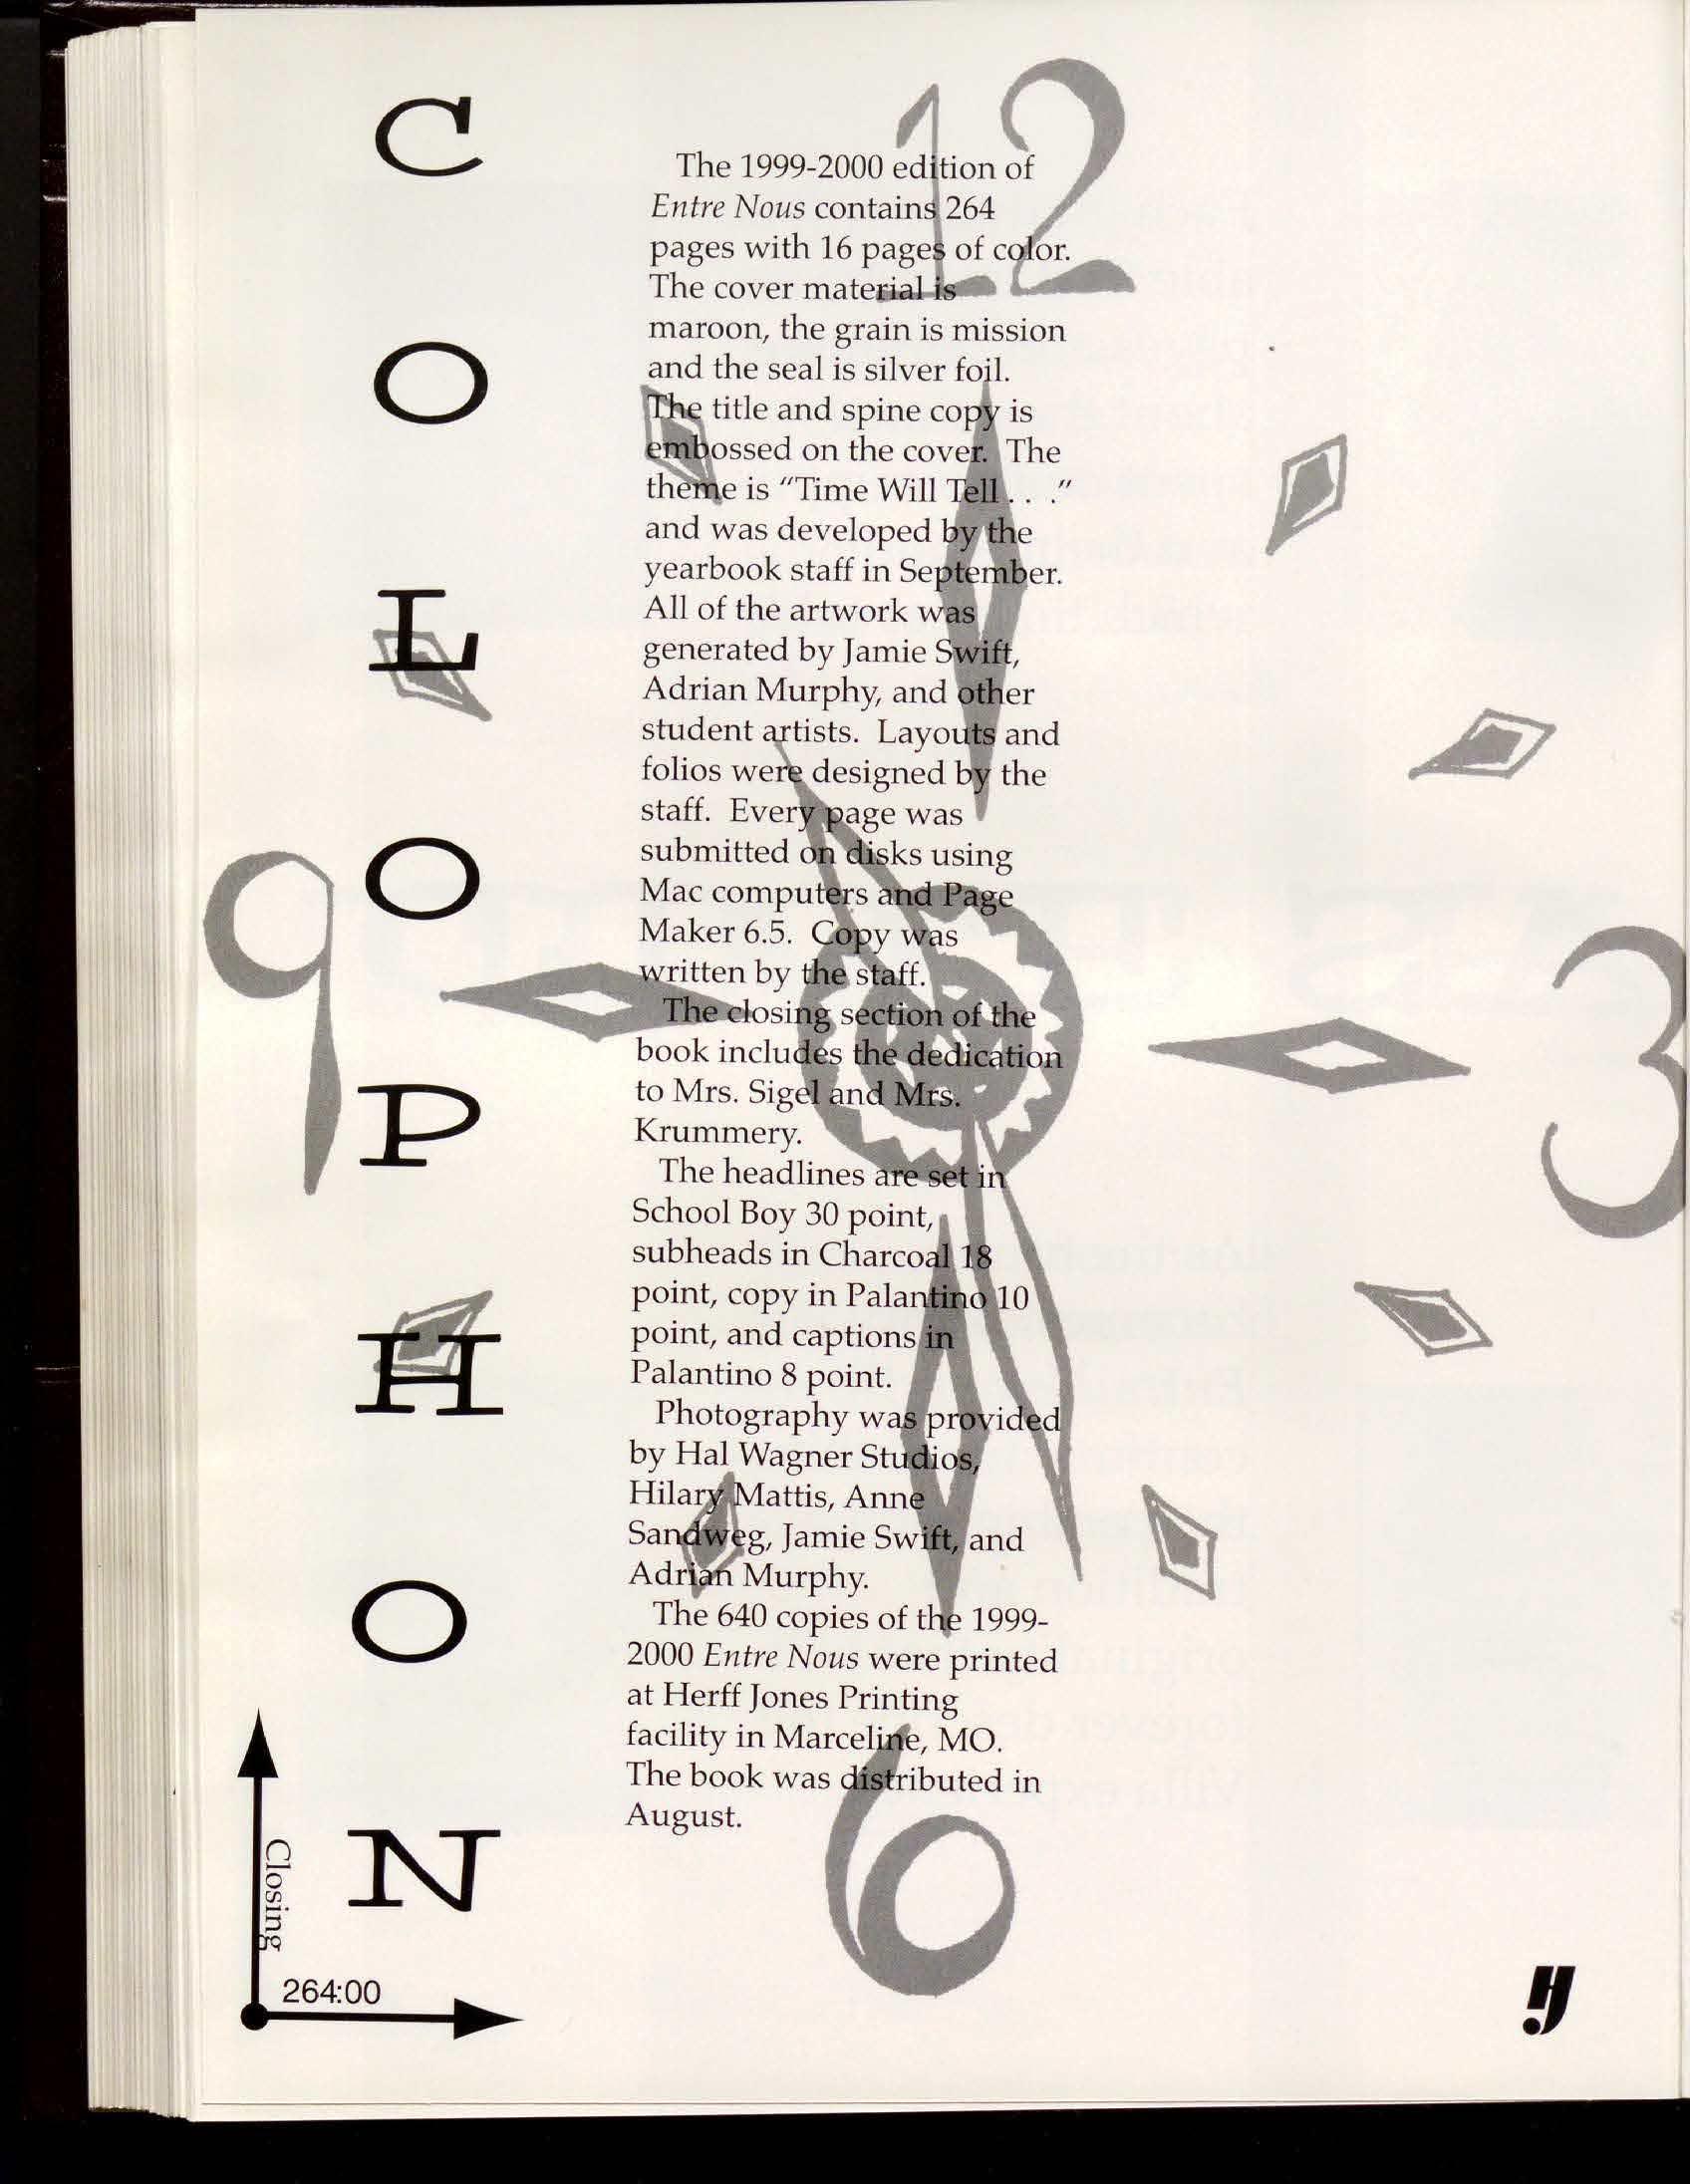 COLOPHON
12
The 1999-2000 edition of
Entre Nous contains 264
pages with 16 pages of color.
The cover material is
maroon, the grain is mission
and the seal is silver foil.
The title and spine copy is
embossed on the cover.  The
theme is "Time Will Tell . . ."
and was developed by the
yearbook staff in September.
All of the artwork was
generated by Jamie Swift,
Adrian Murphy, and other
student artists.  Layouts and
folios were designed by the
staff.  Every page was
submitted on disks using
Mac computers and Page
Maker 6.5.  Copy was
written by the staff.
The closing section of the
book includes the dedication
to Mrs. Sigel and Mrs.
Krummery.
The headlines are set in
School Boy 30 point,
subheads in Charcoal 18
point, copy in Palantino 10
point, and captions in
Palantino 8 point.
Photography was provided
by Hal Wagner Studios,
Hilary Mattis, Anne
Sandweg, Jamie Swift, and
Adrian Murphy.
The 640 copies of the 1999-
2000 Entre Nous were printed
at Herff Jones Printing
facility in Marceline, MO.
The book was distributed in
August.
9
3
6
Closing
264:00
HJ